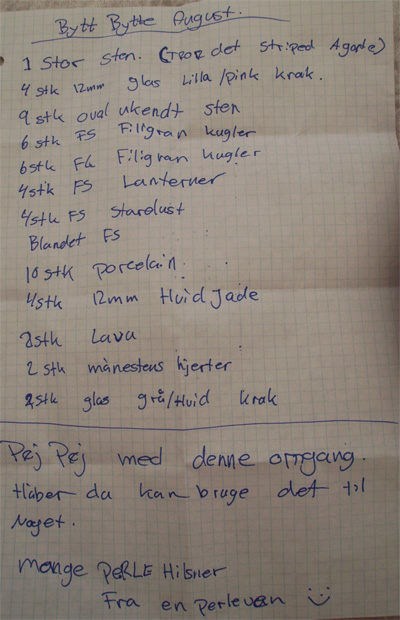 Bytt Bytte August.
1 Stor sten. (TROR det Striped Agate)
4 stk 12mm glas Lilla/pink krak.
9 stk oval ukendt sten
6 stk FS Filigran kugler
6 stk FG Filigran kugler
4 stk FS Lanterner
4 stk FS Stardust
Blandet FS
10 stk porcelain.
4 stk 12mm Hvid Jade
2 stk Lava
2 stk månestens hjerter
2 stk glas grå/Hvid krak
Pøj Pøj med denne omgang.
Håber du kan bruge det til
Noget.
Mange PERLE Hilsner
Fra en perleven :)